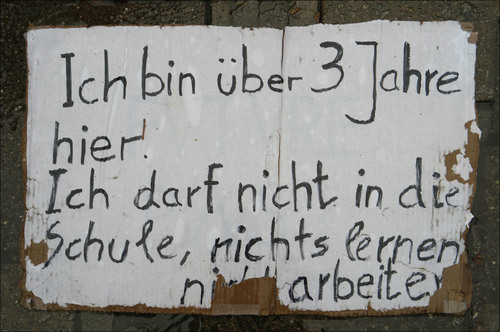 Ich bin über 3 Jahre
hier.
Ich darf nicht in die
Schule, nichts lernen
arbeiten